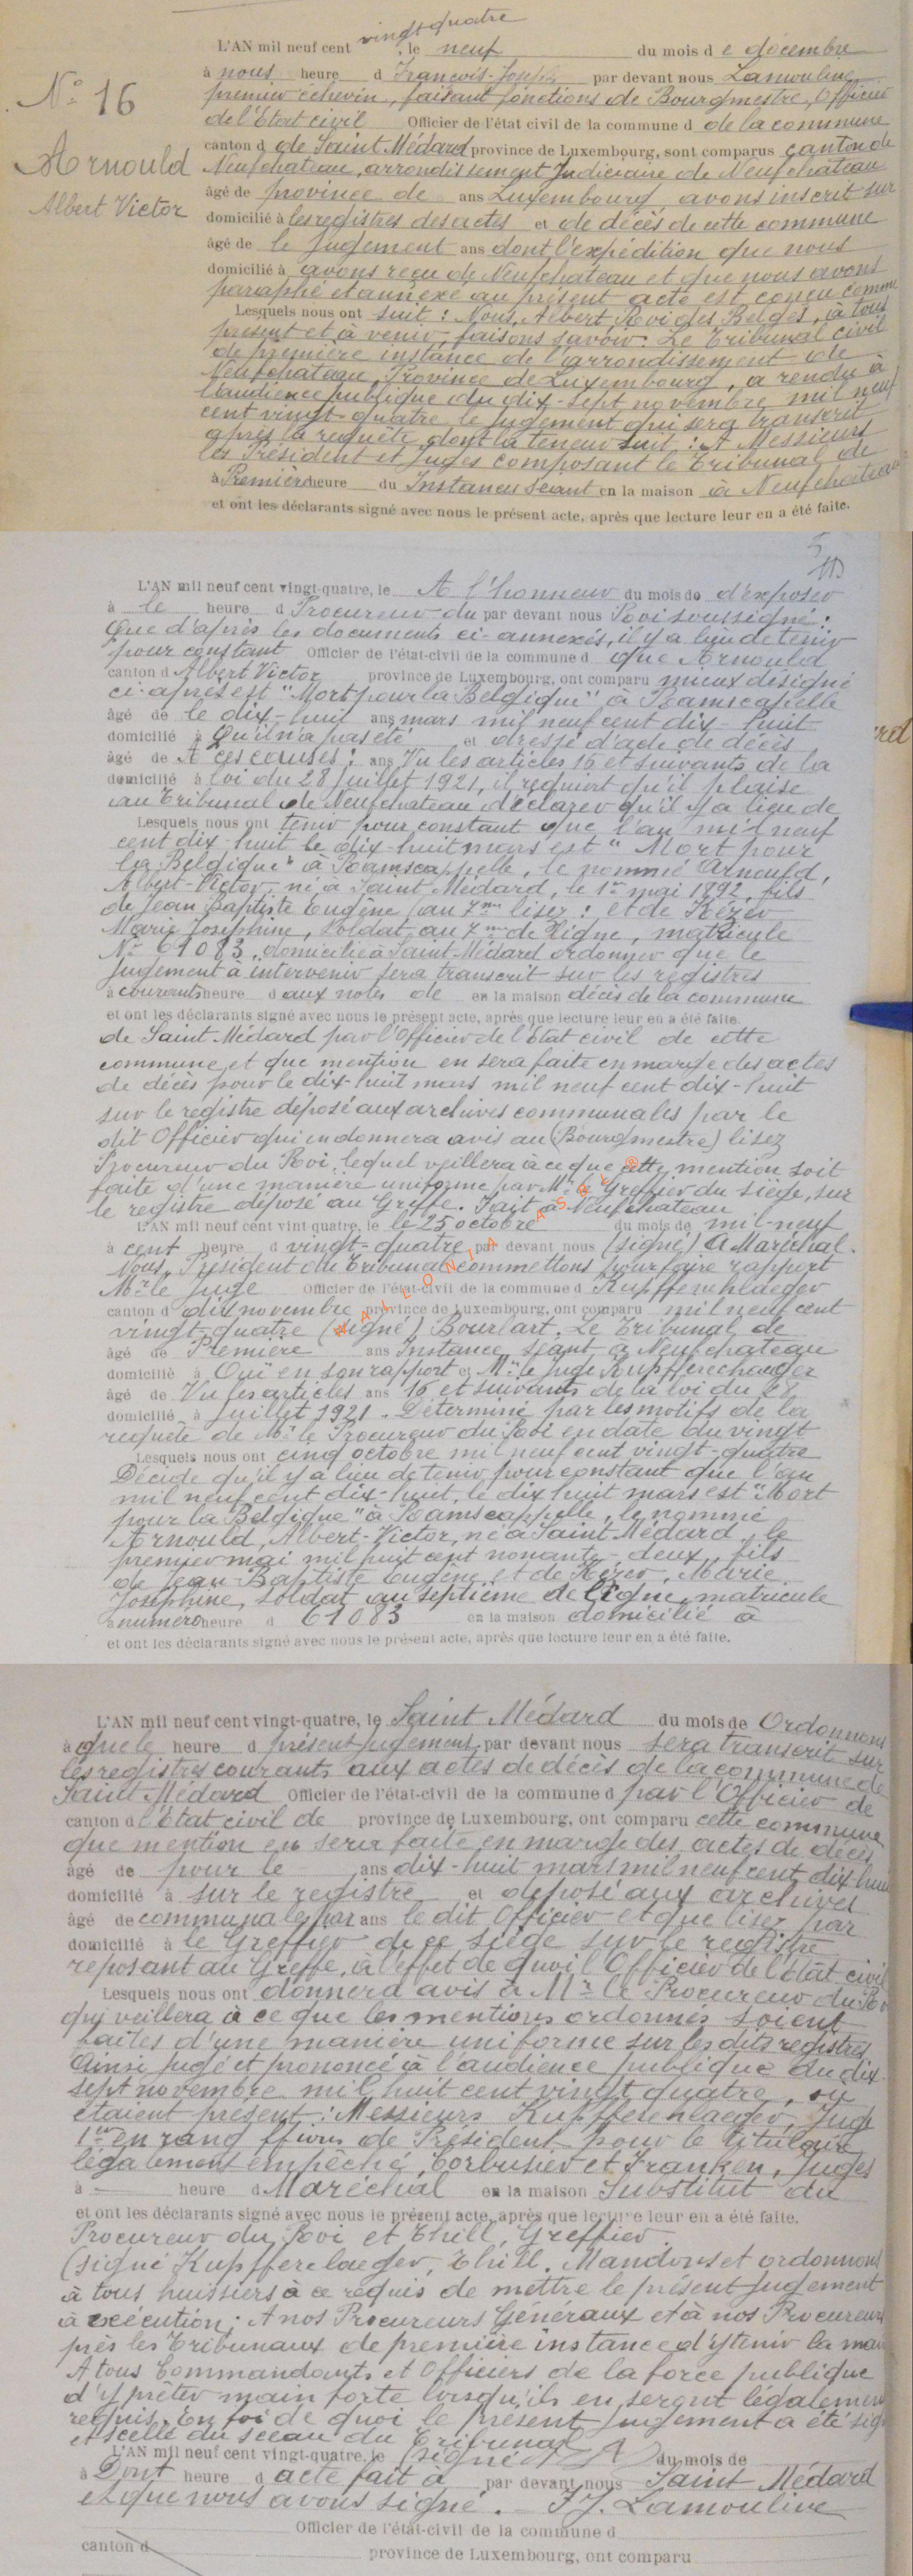 vingt quatre
L'AN mil neuf cent , le neuf du mois d e décembre
à nous heure d François-Joseph par devant nous Lamouline
N° 16
premier échevin, faisant fonctions de Bourgmestre, Officier
de l'Etat civil Officier de l'état civil de la commune d de la commune
canton d de Saint Médard province de Luxembourg, sont comparus canton de
Arnould
Neufchateau, arrondissement Judiciaire de Neufchateau
âgé de province de ans Luxembourg, avons inscrit sur
Albert Victor
domicilié à les registres des actes et de décès de cette commune
âgé de le Jugement ans dont l'expédition que nous
domicilié à avons reçu de Neufchateau et que nous avons
paraphé et annexé au présent acte est conçu comme
Lesquels nous ont suit : Nous, Albert Roi des Belges, à tous
présent et à venir, faisons savoir. Le Tribunal civil
de première instance de l'arrondissement de
Neufchateau, Province de Luxembourg, a rendu à
l'audience publique du dix-sept novembre mil neuf
cent vingt-quatre le Jugement qui sera transcrit
après la requête dont la teneur suit : A Messieurs
les Président et Juges composant le Tribunal de
à Première heure du Instances Séant en la maison à Neufchateau
et ont les déclarants signé avec nous le présent acte, après que lecture leur en a été faite.
L'AN mil neuf cent vingt-quatre, le A l'honneur du mois de d'exposer
à le heure d Procureur du par devant nous Roi soussigné :
Que d'après les documents ci-annexés, il y a lieu de tenir
pour constant Officier de l'état-civil de la commune d que Arnould
canton d Albert Victor province de Luxembourg, ont comparu mieux désigné
ci-après est "Mort pour la Belgique" à Ramscapelle
âgé de le dix-huit ans mars mil neuf cent dix-huit
domicilié à Qu'il n'a pas été et dressé d'acte de décès
âgé de A ces causes : ans Vu les articles 16 et suivants de la
domicilié à loi du 28 juillet 1921, il requiert qu'il plaise
au Tribunal de Neufchateau déclarer qu'il y a lieu de
Lesquels nous ont tenir pour constant que l'an mil neuf
cent dix-huit le dix-huit mars est "Mort pour
la Belgique" à Ramscappelle, le nommé Arnould,
Albert-Victor, né à Saint Médard, le 1er mai 1892, fils
de Jean Baptiste Eugène (au 7me lisez : et de Kézer
Marie Josephine, Soldat au 7me de Ligne, matricule
N° 61083, domicilié à Saint Médard ordonner que le
Jugement à intervenir sera transcrit sur les registres
à courants heure d aux notes de en la maison décès de la commune
et ont les déclarants signé avec nous le présent acte, après que lecture leur en a été faite.
de Saint Médard par l'Officier de l'Etat civil de cette
commune et que mention en sera faite en marge des actes
de décès pour le dix-huit mars mil neuf cent dix-huit
sur le registre déposé aux archives communales par le
dit Officier qui en donnera avis au (Bourgmestre) lisez
Procureur du Roi, lequel veillera à ce que cette mention soit
faite d'une manière uniforme par Mr le Greffier du siège, sur
le registre déposé au Greffe. Fait à Neufchateau
L'AN mil neuf cent vint-quatre, le le 25 octobre du mois de mil-neuf
à cent heure d vingt-quatre par devant nous (signé) A Maréchal.
WALLONIA ASBL ®
Nous, Président du Tribunal commettons pour faire rapport
Mr le Juge Officier de l'état-civil de la commune d Kupfferschlaeger
canton d dix novembre province de Luxembourg, ont comparu mil neuf cent
vingt-quatre (signé) Bourlart. Le Tribunal de
âgé de Première ans Instance Séant à Neufchateau
domicilié à Ouï en son rapport et Mr le Juge Kupfferschaeger
âgé de Vu les articles ans 16 et suivants de la loi du 28
domicilié à Juillet 1921. Déterminé par les motifs de la
requête de Mr le Procureur du Roi en date du vingt
Lesquels nous ont cinq octobre mil neuf cent vingt-quatre
Décide qu'il y a lieu de tenir pour constant que l'an
mil neuf cent dix-huit, le dix huit mars est "Mort
pour la Belgique" à Ramscappelle, le nommé
Arnould, Albert-Victor, né à Saint Médard, le
premier mai mil huit cent nonante-deux, fils
de Jean-Baptiste Eugène et de Kézer, Marie
Josephine, soldat au septième de ligne, matricule
à numéro heure d 61083 en la maison domicilié à
et ont les déclarants signé avec nous le présent acte, après que lecture leur en a été faite.
L'AN mil neuf cent vingt-quatre, le Saint Médard du mois de Ordonnons
à que le heure d présent Jugement par devant nous sera transcrit sur
les registres courants aux actes de décès de la commune de
Saint Médard Officier de l'état-civil de la commune d par l'Officier de
canton d l'Etat civil de province de Luxembourg, ont comparu cette commune
que mention en sera faite en marge des actes de décès
âgé de pour le ans dix-huit mars mil neuf cent dix huit
domicilié à sur le registre et déposé aux archives
âgé de communales par ans le dit Officier et que lisez par
domicilié à le Greffier de ce siège sur le registre
reposant au Greffe, à l'effet de quoi l'Officier de l'état civil
Lesquels nous ont donnera avis à Mr le Procureur du Roi
qui veillera à ce que les mentions ordonnés soient
faites d'une manière uniforme sur les dits registres
Ainsi jugé et prononcé à l'audience publique du dix-
sept novembre mil huit cent vingt quatre, où
étaient présent : Messieurs Kupfferschlaeger, Juge
1er en rang ffions de Président pour le titulaire
légalement empêché, Corbusier et Franken, Juges
à heure d Maréchal en la maison Substitut du
et ont les déclarants signé avec nous le présent acte, après que lecture leur en a été faite.
Procureur du Roi et Thill, Greffier.
(signé Kupfferslaeger, Thill. Mandons et ordonnons
à tous huissiers à ce requis de mettre le présent Jugement
à exécution; A nos Procureurs Généraux et à nos Procureurs
près les Tribunaux de première instance d'y tenir la main
A tous Commandants et Officiers de la force publique
d'y prêter main forte lorsqu'ils en seront légalement
requis. En foi de quoi le présent Jugement a été sig
et scellé du sceau du Tribunal
L'AN mil neuf cent vingt-quatre, le (signé du mois de
à Dont heure d acte fait à par devant nous Saint Médard
et que nous avons signé. — F J. Lamouline
Officier de l'état-civil de la commune d
canton d province de Luxembourg, ont comparu